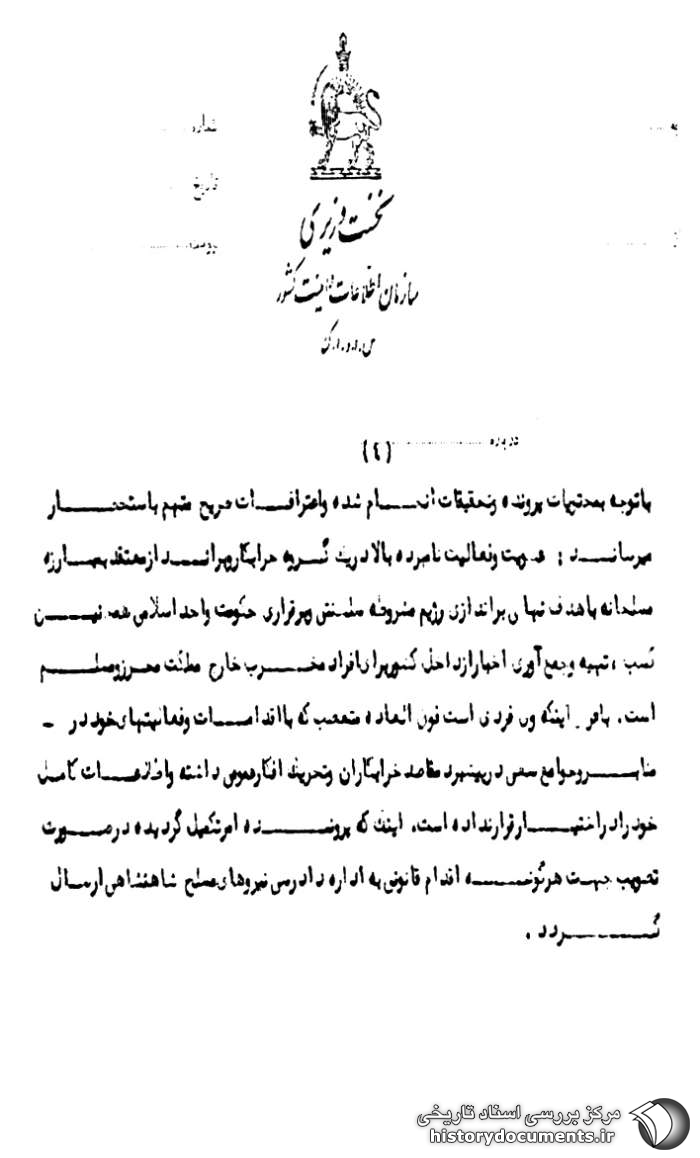 شماره
به
تاریخ
از
پیوست
نخست وزیری
سازمان اطلاعات و امنیت کشور
س.ا.و.ا.ک
درباره
(٤)
باتوجه بمحتویات پرونده وتحقیقات انجام شده واعترافات صریح متهم باستحضار
میرساند : عضویت وفعالیت نامبرده بالا دریک گروه خرابکاروبرانداز معتقد بمبارزه
مسلحانه باهدف نهائی براندازی رژیم مشروطه سلطنتی وبرقراری حکومت واحد اسلامی همچنین
کسب ، تهیه وجمع آوری اخبارازداخل کشوربرای افراد مخرب خارج مملکت محرزومسلم
است. بافرض اینکه وی فردی است فوق العاده متعصب که بااقدامات وفعالیتهای خود در -
منابر وجوامع سعی درپیشبرد مقاصد خرابکاران وتحریک افکارعمومی داشته واطلاعات کامل
خود رادراختیار قرارنداده است. اینک که پرونده امرتکمیل گردیده درصورت
تصویب جهت هرگونه اقدام قانونی به اداره دادرسی نیروهای مسلح شاهنشاهی ارسال
گردد .
مرکز بررسی اسناد تاریخی
historydocuments.ir